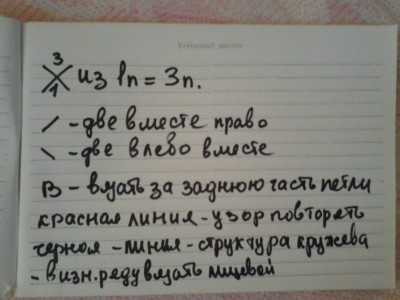 3
1 из 1п = 3п.
/ - две вместе право
\ - две влево вместе
В - вязать за заднюю часть петли
красная линия - узор повторять
черная - линия - структура кружева
- в изн. ряду вязать лицевой